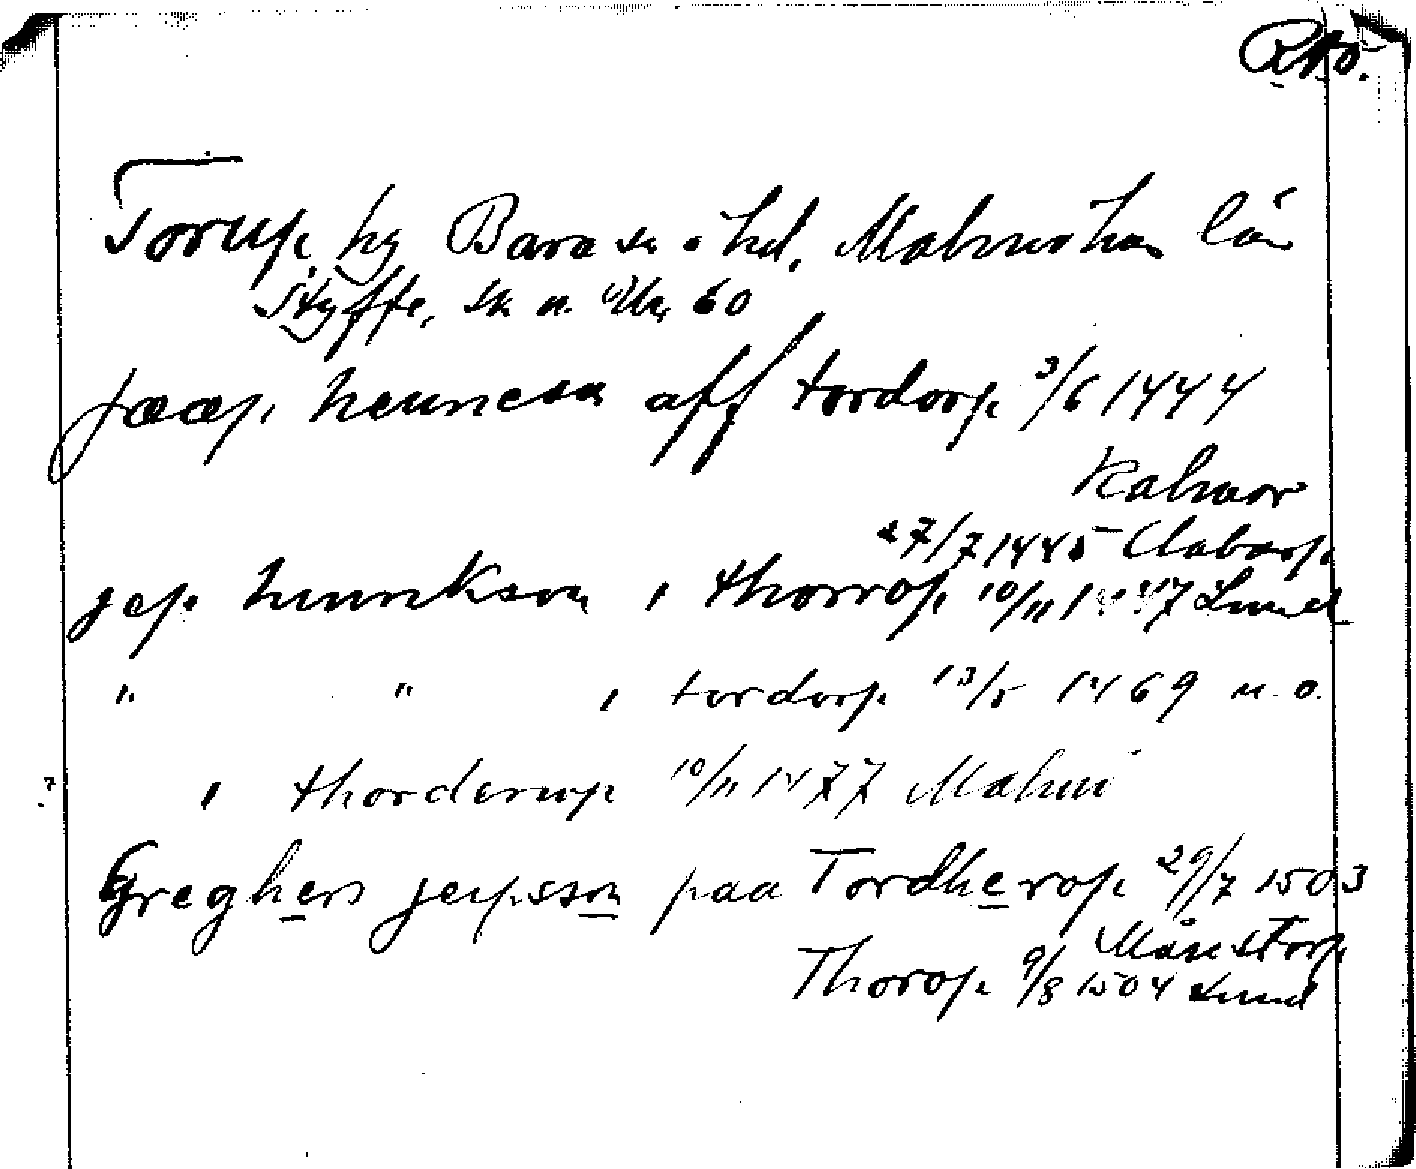 RAÖ.
Torup hg Bara sn o hd, Malmöhus län
Styffe, Sk. u. Un. 60
jææp. hennesø aff tordorp 3/6 1444
Kalmar
27/7 1445 Clabarp
jep. hinrikson i thorrop 10/11 1447 Lund
" " i tordorp 13/5 1469 u. o.
? i thorderup 10/11 1477 Malmö
Greghers jeipsson paa Tordherop 29/7 1503
Månstorp
Thorop 9/8 1504 Lund